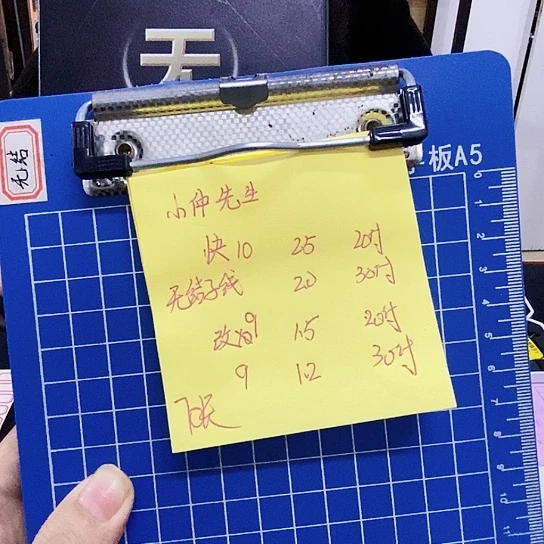 无
无结
板A5
小仲先生
快10 25 20寸
无结子线 20 30寸
改如9 1.5 20寸
9 1.2 30寸
0
1
2
3
4
5
6
7
8
9
10
11